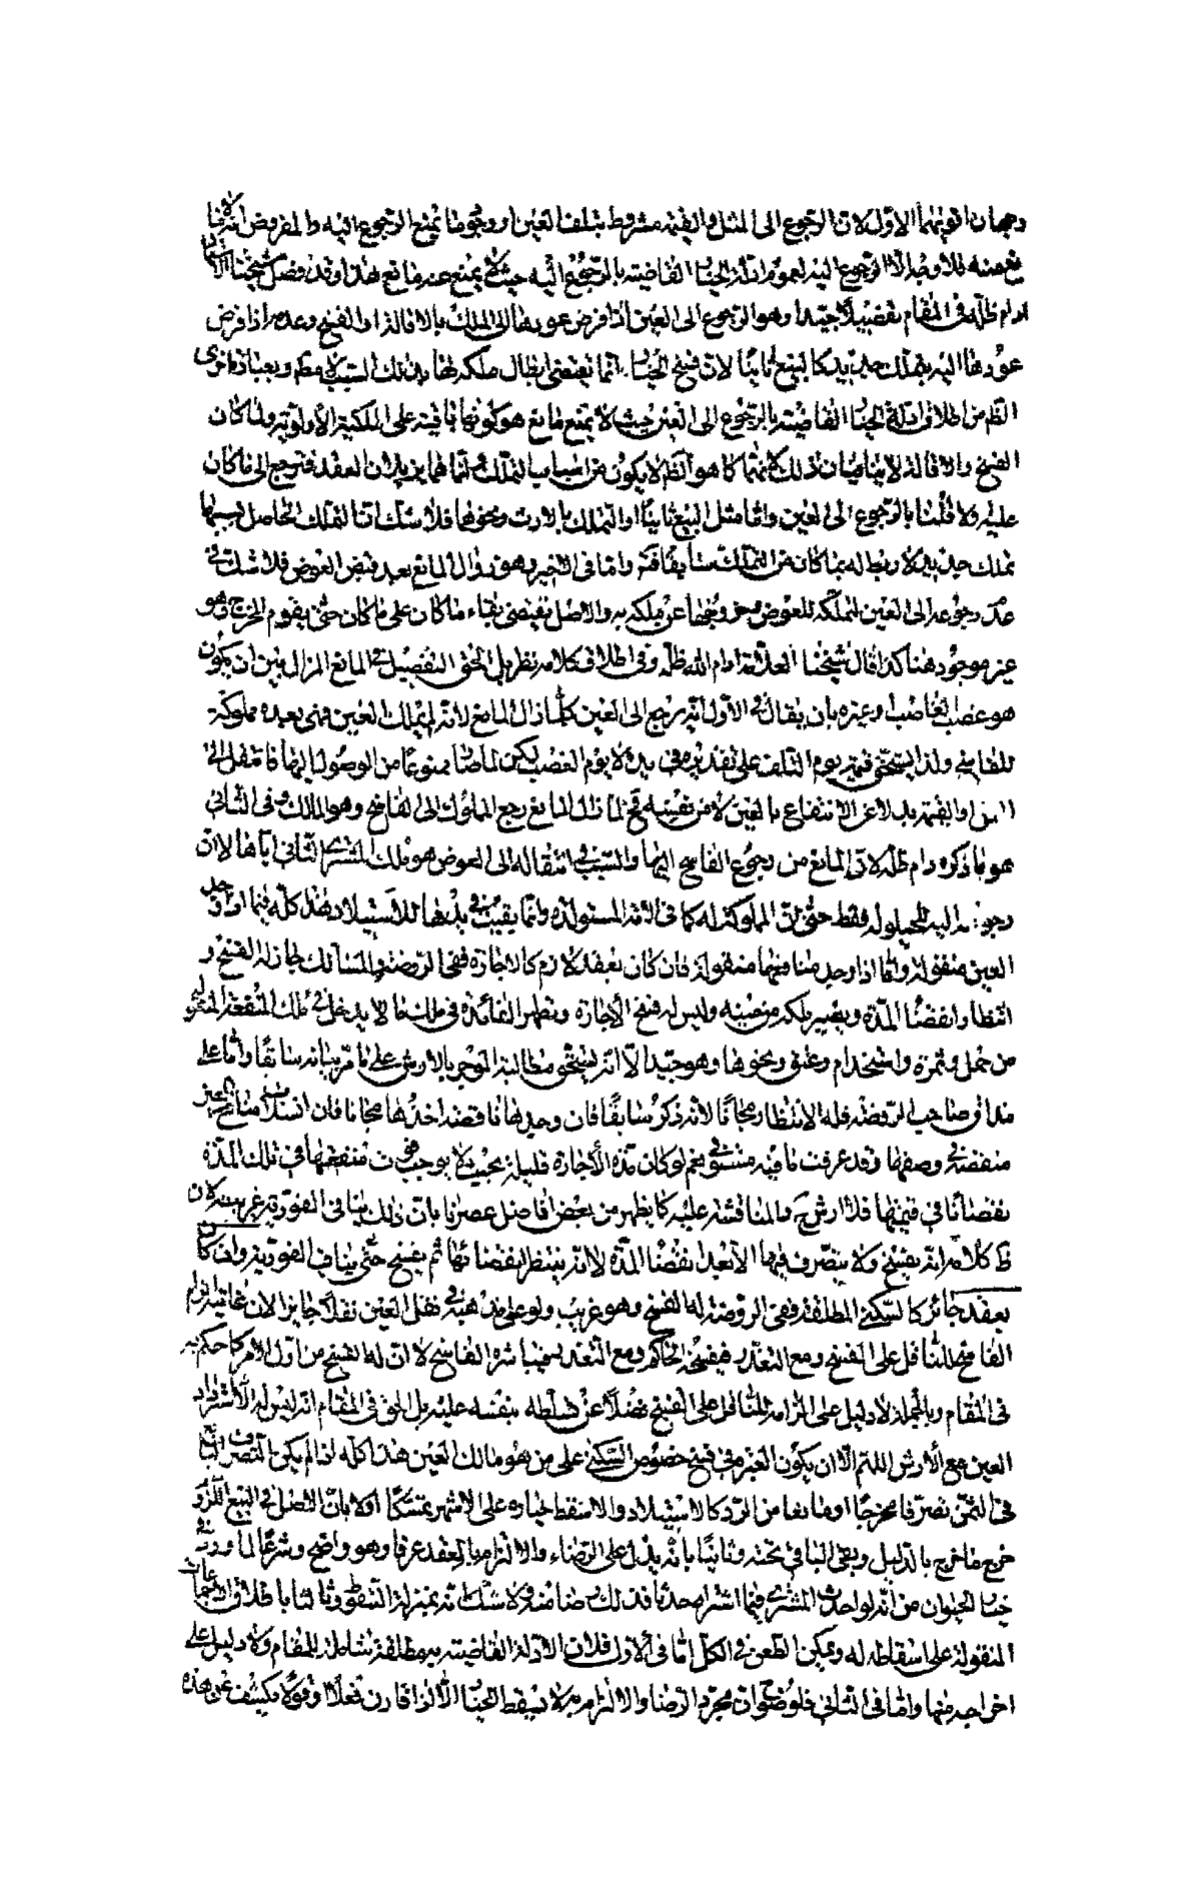 وجهان اقويهما الاوّل لانّ الرجوع الى المثل والقيمة مشروط بتلف العين او وجود ما يمنع الرجوع اليه والمفروض انه لا
فلا وجه الّا الرجوع اليه لعموم ادلّة الخيار القاضية بالرجوع اليه حيث لم يمنع عنه مانع هذا وقد فصل شيخنا الاستاد
ادام ظلّه في المقام تفصيلا جيّدا وهو الرجوع الى العين اذا فرض عودها الى الملك بالاقالة او الفسخ وعدمه اذا فرض
عودها اليه بتملك جديد كالبيع ثانيا لان فسخ الخيار انما يقتضى ابطال ملكه لها بذلك السبب لا مطلقا وبعبارة اخرى
الظاهر من اطلاق ادلة الخيار القاضية بالرجوع الى العين حيث لا يمنع مانع هو كونها باقية على الملكية الأولوية ولما كان
الفسخ والاقالة لا ينافيان ذلك لانهما كما هو الظاهر لا يكون من اسباب التملك وانما هما يزيلان العقد فترجع الى ما كان
عليه ولا قلنا بالرجوع الى العين واما مثل البيع ثانيا او التملك بالارث ونحوها فلا شك ان التملك الحاصل بسببها
تملك جديد لا ربط له بما كان من التملك سابقا فتم واما في الاخير وهو زوال المانع بعد قبض العوض فلا شك في
عدم رجوعه الى العين لتملكه للعوض وخروجها عن ملكه به والاصل يقتضى بقاء ما كان على ما كان حتى يقوم المخرج وهو
غير موجود هنا كذا قال شيخنا العلامة ادام الله ظلّه وفي اطلاق كلامه نظر بل الحق التفصيل في المانع المزال بين ان يكون
هو غصب الغاصب وغيره بان يقال في الاول انه يرجع الى العين كلما زال المانع لانه لم يتملك العين فهى بعيده مملوكة
للفاسخ ولذا يستحق قيمة يوم التلف على تقديره في يده لا يوم الغصب لكن لما صار ممنوعا من الوصول اليها فانتقل الى
المثل او القيمة بدلا عن الانتفاع بالعين لا من نفسه فح لما زال المانع رجع المملوك الى الفاسخ وهو المالك وفي الثاني
هو ما ذكره دام ظلّه لان المانع من رجوع الفاسخ اليها والسبب في انتقاله الى العوض هو ملك المشتري الثاني اياها لا ان
رجوعه اليه للحيلولة فقط حتى تكون المملوكة له كما في الامة المستولدة وانما بقيت في يدها للاستيلاد هذا كله فيما اذا وجد
العين منقولة واما اذا وجد منافعها منقولة فان كان بعقد لازم كالاجارة ففى الروضة والمسالك جاز له الفسخ و
انتظار انقضاء المدة ويصير ملكه من حينه وليس له فسخ الاجارة وتظهر الفائدة في ملك ما لا يدخل في تلك المنفعة المنقولة
من حمل وثمرة واستخدام وعتق ونحوها وهو جيد الا انه يستحق مطالبة الموجر بالارش على ما مر بيانه سابقا واما على
مذاق صاحب الروضة فله الانتظار مجانا لانه ذكر سابقا فان وجدها ناقصة اخذها مجانا فان انسداد منافع العين
منقصة في وصفها وقد عرفت ما فيه مستوفى نعم لو كان مدة الاجارة قليلة بحيث لا يوجب فوت منفعتها في تلك المدة
نقصانا في قيمتها فلا ارش ح والمناقشة عليه كما يظهر من بعض افاضل عصرنا بان ذلك ينافى الفورية غريبة لان
ظ كلامه انه يفسخ ولا يتصرف فيها الا بعد انقضاء المدة لا انه ينتظر انقضائها ثم يفسخ حتى ينافي الفورية وان كان
بعقد جائز كالسكنى المطلقة ففى الروضة له الفسخ وهو غريب ولو على مذهبه في نقل العين نقلا جايزا لان غايته الزام
الفاسخ للناقل على الفسخ ومع التعذر فيفسخه الحاكم ومع التعذر يباشره الفاسخ لا ان له الفسخ من اول الامر كما حكم به
في المقام وبالجملة لا دليل على الزامه للناقل على الفسخ فضلا عن تسلطه بنفسه عليه بل الحق في المقام انه ليس له الا استرداد
العين مع الارش اللهم الا ان يكون الغرض في فسخ خصوص السكنى على من هو مالك العين هذا كله اذا لم يكن التصرف الواقع
في الثمن تصرفا مخرجا او مانعا من الرد كالاستيلاد والا سقط خياره على الاشهر تمسكا اولا بان الاصل في البيع اللزوم
خرج ما خرج بالدليل وبقى الباقي تحته وثانيا بانه يدل على الرضاء والالتزام بالعقد عرفا وهو واضح وشرعا لما ورد في
خيار الحيوان من انه لو احدث المشتري فيما اشتراه حدثا فذلك رضا منه ولا شك انه بمنزلة التنقيط وثالثا باطلاق الاجماعات
المنقولة على اسقاطه له ويمكن الطعن في الكل اما في الاول فلان الادلة القاضية به مطلقة شاملة للمقام ولا دليل على
اخراجه منها واما في الثاني فلوضوح ان مجرد الرضا والالتزام به لا يسقط الخيار الا اذا قارن فعلا او قولا يكشف عن هذه